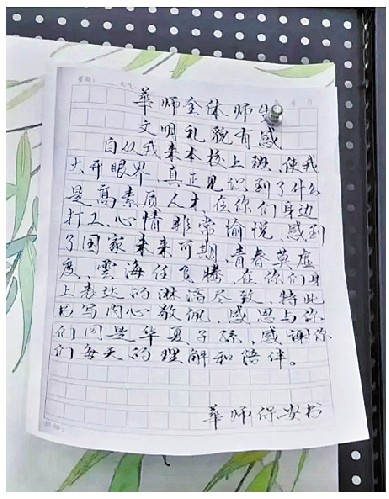 華师全体师生
文明礼貌有感
自从我来本校上班,使我
大开眼界,真正见识到了什么
是高素质人才,在你们身边
打工心情非常愉悦,感到
了国家未来可期,青春莫虚
度,雲海任良楼,在你们身
上表达的淋漓尽致,特此
书写内心敬佩,感恩与你
们同是华夏子孫,感谢你
们每天的理解和陪伴。
華师保安书